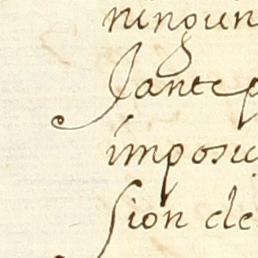 ningun
Jante p
imposic
sion de